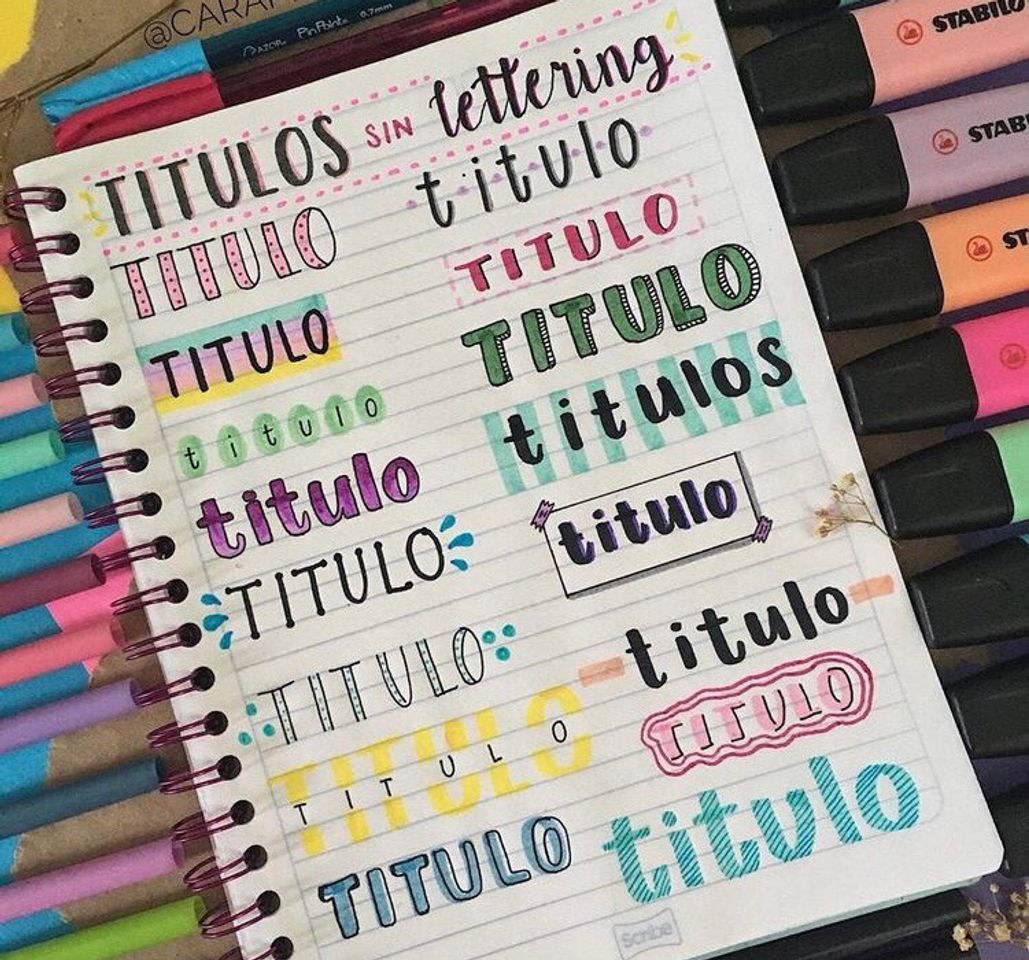 @CARA
RAZOR PinPoint 0.7mm
TITULOS SIN lettering
TITULO
titulo
TITULO
TITULO
TITULO
titulo
titulos
titulo
titulo
TITULO
titulo
TITULO
TITULO
TITULO
TITULO
titulo
TITULO
Scribe
STABILO
STABI
STAB
ST